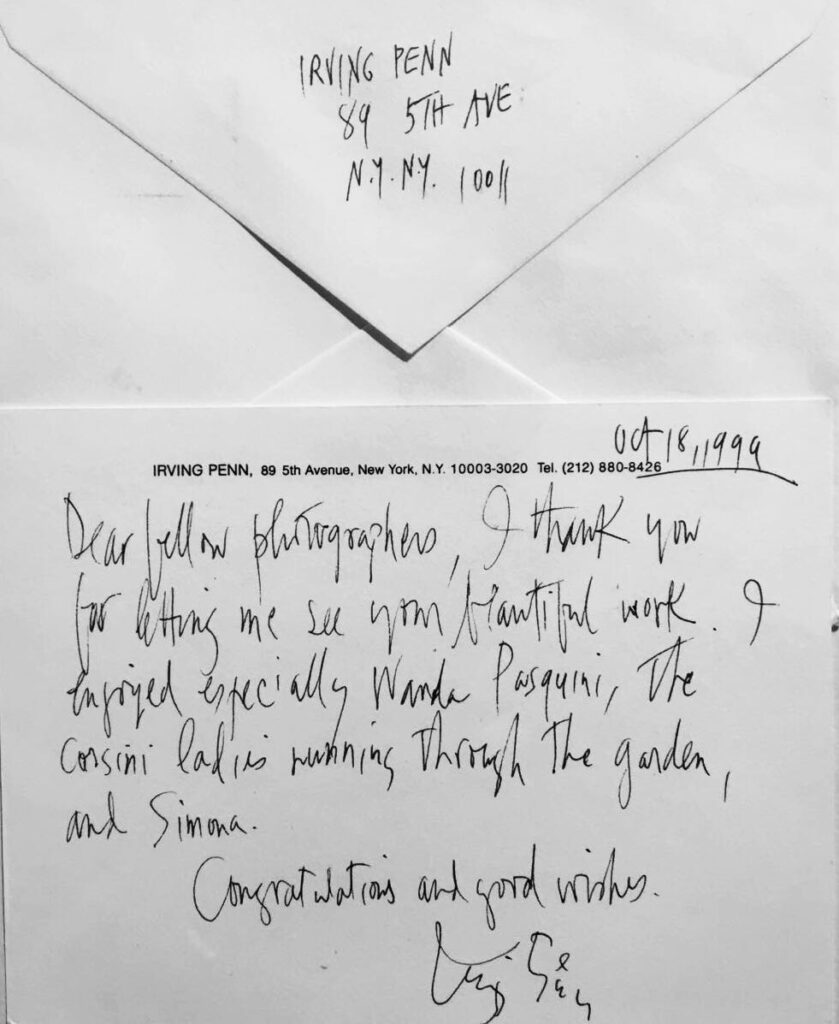 IRVING PENN
89 5TH AVE
N.Y. N.Y. 10011
Oct 18, 1999
IRVING PENN, 89 5th Avenue, New York, N.Y. 10003-3020 Tel. (212) 880-8426
Dear fellow photographers, I thank you
for letting me see your beautiful work. I
enjoyed especially Wanda Pasquini, The
Corsini ladies running through the garden,
and Simona.
Congratulations and good wishes.